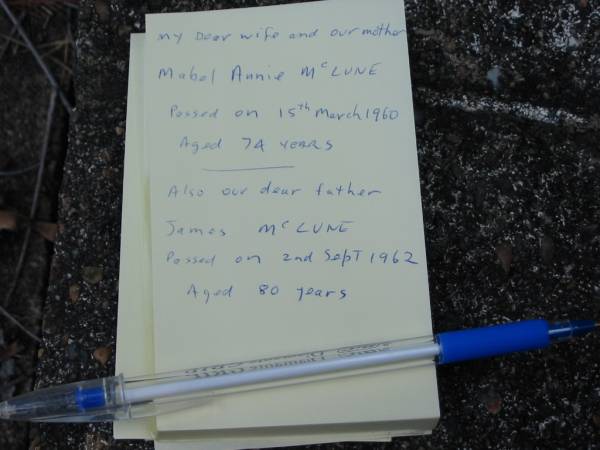 My Dear wife and our mother
Mabel Annie McLUNE
Passed on 15th March 1960
Aged 74 years
Also our dear father
James McLUNE
Passed on 2nd Sept 1962
Aged 80 years